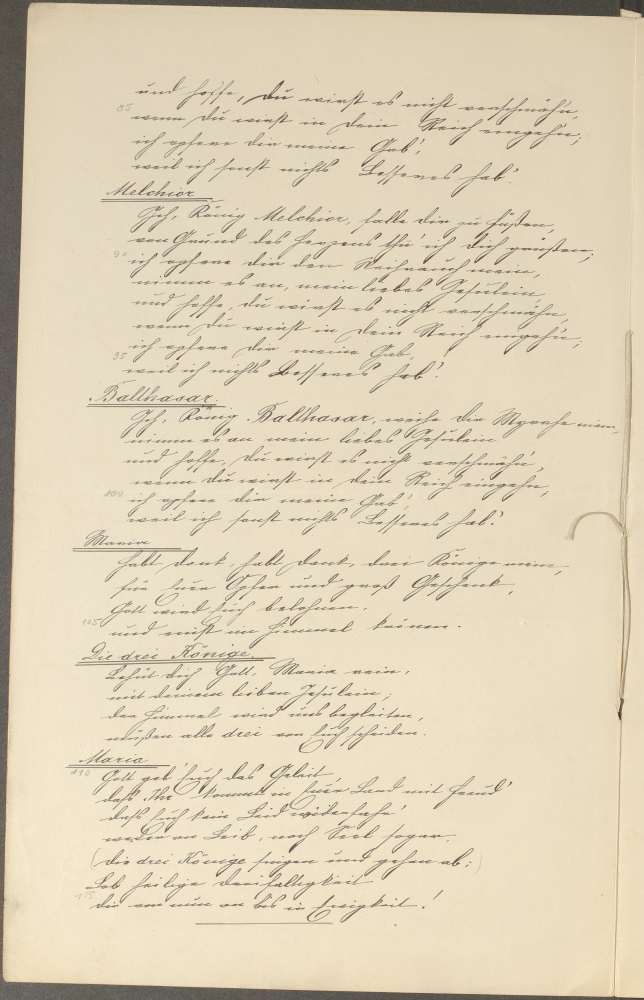 und hoffe, du wirst es nicht verschmähn,
85 wenn du wirst in Dein Reich eingehn;
ich opfere dir meine Gab',
weil ich sonst nichts Besseres hab'.
Melchior
Ich, König Melchior, falle dir zu Füßen,
von Grund des Herzens thu' ich dich grüßen;
90 ich opfere dir den Weihrauch mein,
nimm es an, mein liebes Jesulein,
und hoffe, du wirst es nicht verschmähn,
wenn du wirst in Dein Reich eingehn;
ich opfere dir meine Gab,
95 weil ich nichts Besseres hab'!
Balthasar.
Ich, König Balthasar, weihe dir Myrrhe mein,
nimm es an mein liebes Jesulein
und hoffe, du wirst es nicht verschmähn',
wenn du wirst in dein Reich eingehn,
100 ich opfere dir meine Gab',
weil ich sonst nichts Besseres hab'.
Maria
Habt Dank, habt Dank, drei Könige mein,
für Euer Opfer und groß Geschenk,
Gott wird Euch belohnen.
105 und einst im Himmel krönen.
Die drei Könige
Behüt dich Gott, Maria rein,
mit deinem lieben Jesulein;
der Himmel wird uns begleiten,
müßen alle drei von Euch scheiden.
Maria
110 Gott geb' Euch das Geleit,
daß Ihr kommet in Euer Land mit Freud'
daß Euch kein Leid widerfahr'
weder an Leib, noch Seel sogar.
(die drei Könige singen und gehen ab:)
Lob heilige Dreifaltigkeit
115 die von nun an bis in Ewigkeit!